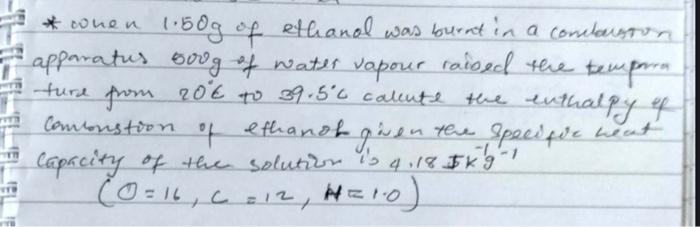 * when 1.50g of ethanol was burnt in a combustion
apparatus 500g of water vapour raised the tempera
ture from 20°C to 39.5°C calcute the enthalpy of
Combonstion of ethanol given the Specific heat
Capacity of the solution is 4.18 JK⁻¹g⁻¹
(O = 16, C = 12, H = 1.0)